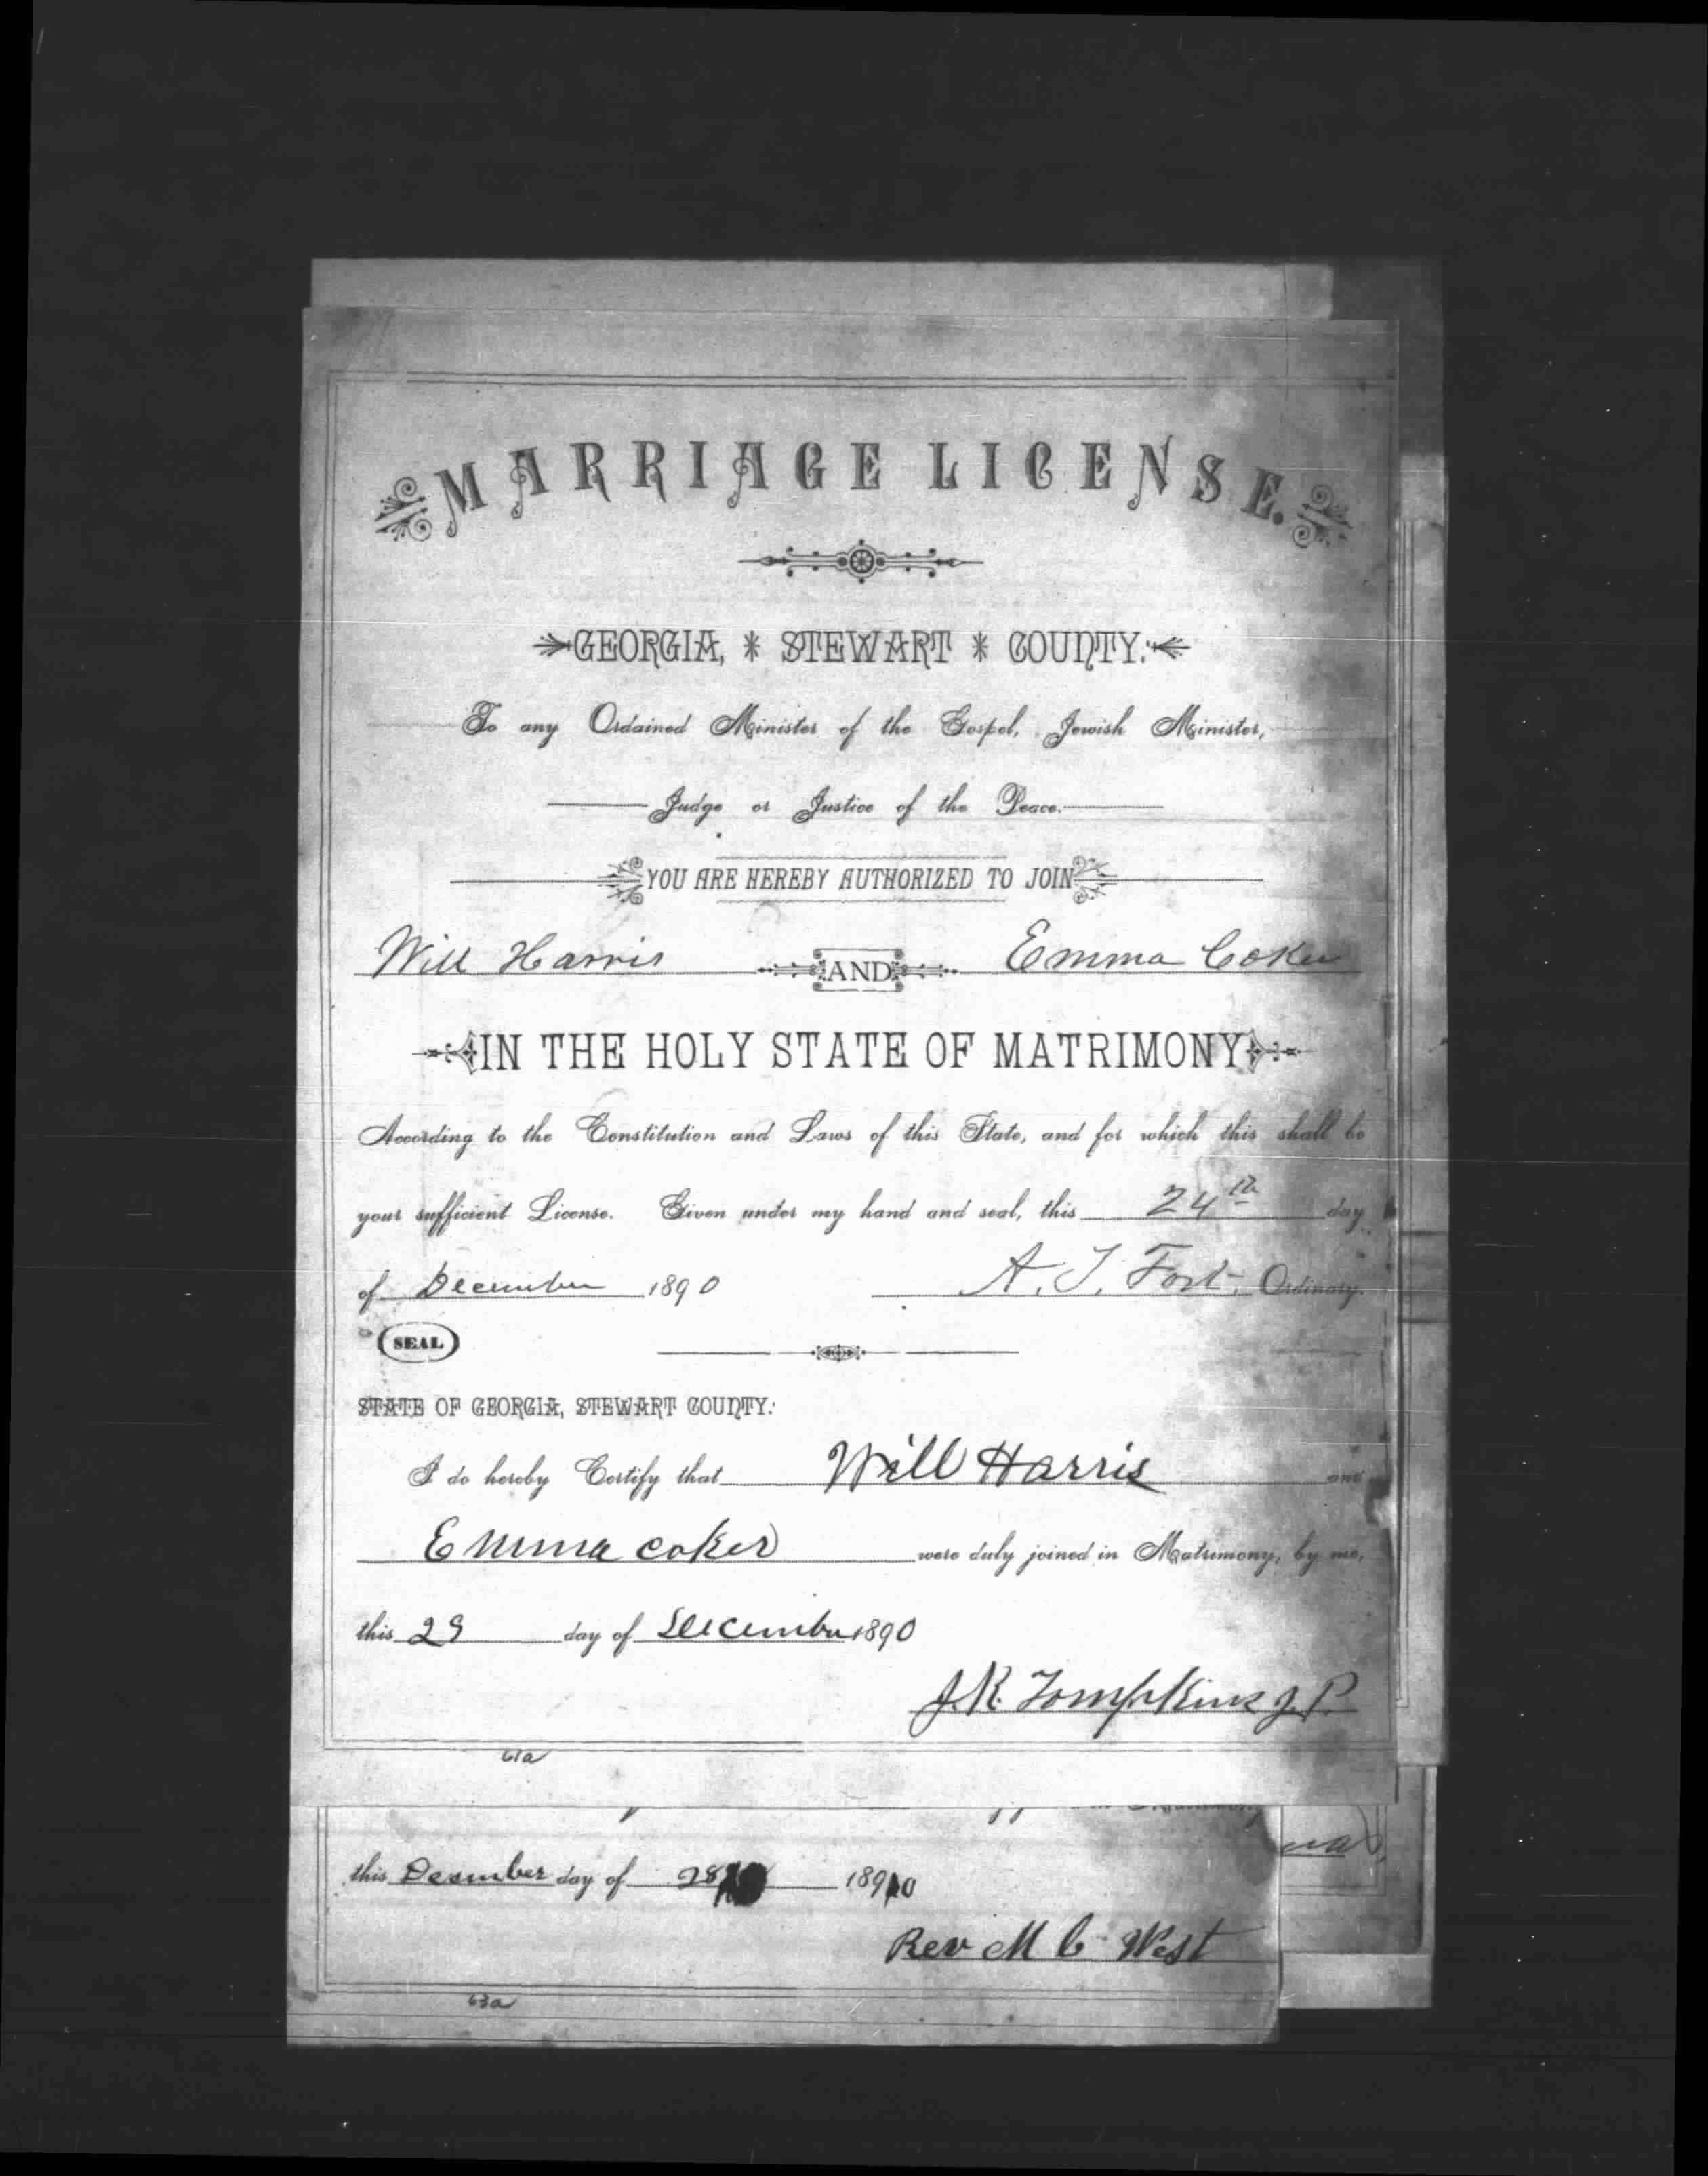 MARRIAGE LICENSE.
GEORGIA, * STEWART * COUNTY:
To any Ordained Minister of the Gospel, Jewish Minister,
Judge or Justice of the Peace.
YOU ARE HEREBY AUTHORIZED TO JOIN
Will Harris AND Emma Coker
IN THE HOLY STATE OF MATRIMONY
According to the Constitution and Laws of this State, and for which this shall be
your sufficient License. Given under my hand and seal, this 24th day
of December 1890 A. T. Fort. Ordinary.
SEAL
STATE OF GEORGIA, STEWART COUNTY:
I do hereby Certify that Will Harris and
Emma coker were duly joined in Matrimony, by me,
this 29 day of December 1890
J.R. Tompkins J.P.
61a
this Desember day of 28 1890
Rev M C West
63a